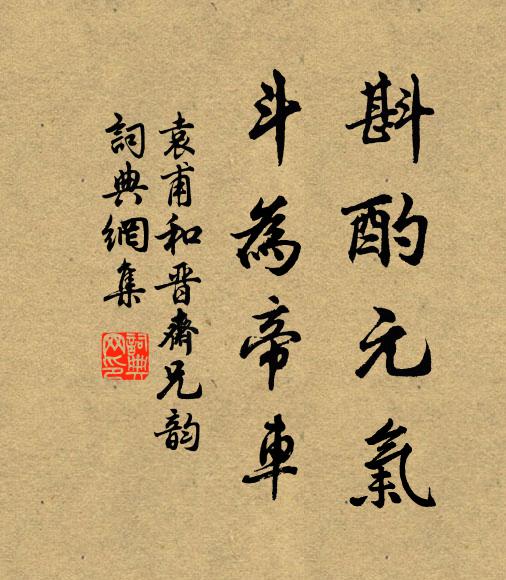 斟酌元氣
斗為帝車
袁甫和晉齋兄韵
詞典網集
詞典網印